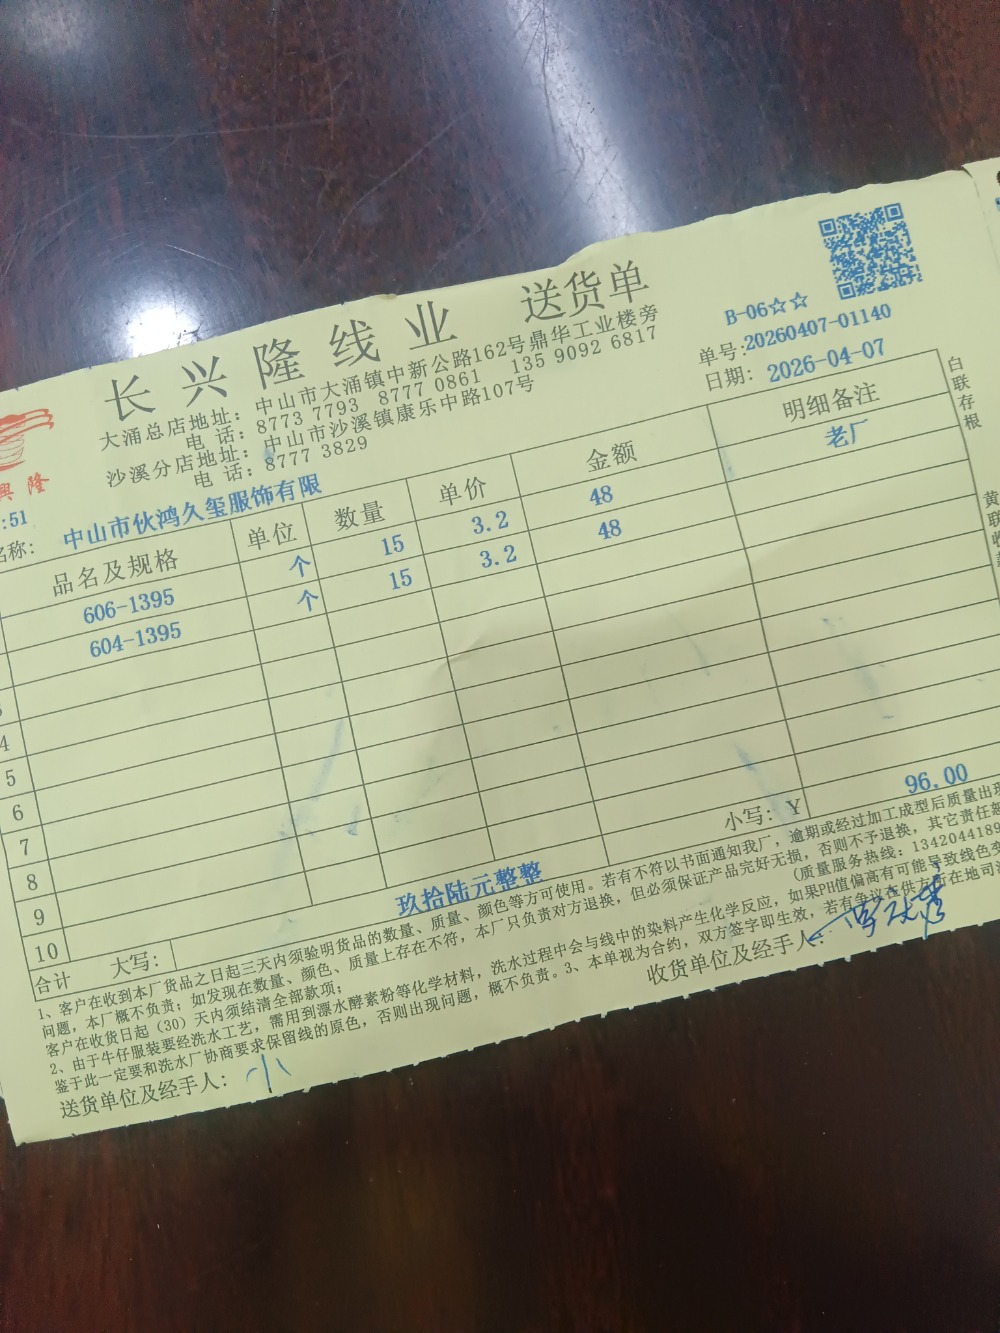 长兴隆线业 送货单
B-06☆☆
大涌总店地址: 中山市大涌镇中新公路162号鼎华工业楼旁
单号:20260407-01140
电 话: 8773 7793 8777 0861 135 9092 6817
日期: 2026-04-07
沙溪分店地址: 中山市沙溪镇康乐中路107号
电 话: 8777 3829
興 隆
:51
名称: 中山市伙鸿久玺服饰有限
品名及规格 单位 数量 单价 金额 明细备注
606-1395 个 15 3.2 48 老厂
604-1395 个 15 3.2 48
4
5
6
7
8
9
10
合计 大写: 玖拾陆元整整 小写: Y 96.00
1、客户在收到本厂货品之日起三天内须验明货品的数量、质量、颜色等方可使用。若有不符以书面通知我厂,逾期或经过加工成型后质量出现
问题,本厂概不负责;如发现在数量、颜色、质量上存在不符,本厂只负责对方退换,但必须保证产品完好无损,否则不予退换,其它责任
客户在收货日起(30)天内须结清全部款项; (质量服务热线:134204418
2、由于牛仔服装要经洗水工艺,需用到漂水酵素粉等化学材料,洗水过程中会与线中的染料产生化学反应,如果PH值偏高有可能导致线色
鉴于此一定要和洗水厂协商要求保留线的原色,否则出现问题,概不负责。3、本单视为合约,双方签字即生效,若有争议在供方所在地司
送货单位及经手人: 小
收货单位及经手人:
白联存根
黄联收